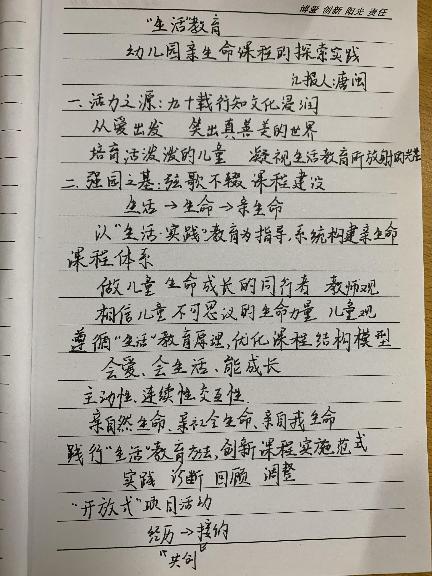 博爱 创新 阳光 责任
"生活"教育
幼儿园亲生命课程的探索实践
汇报人:唐闽
一.活力之源:九十载行知文化浸润
从爱出发 笑出真善美的世界
培育活泼泼的儿童 凝视生活教育所放射的光芒
二.强园之基:弦歌不辍 课程建设
生活→生命→亲生命
以"生活·实践"教育为指导,系统构建亲生命
课程体系
做儿童生命成长的同行者 教师观
相信儿童不可思议的生命力量 儿童观
遵循"生活"教育原理,优化课程结构模型
会爱、会生活、能成长
主动性、连续性、交互性.
亲自然生命、亲社会生命、亲自我生命
践行"生活"教育方法,创新课程实施范式
实践 诊断 回顾 调整
"开放式"项目活动
经历→接纳
"共创"